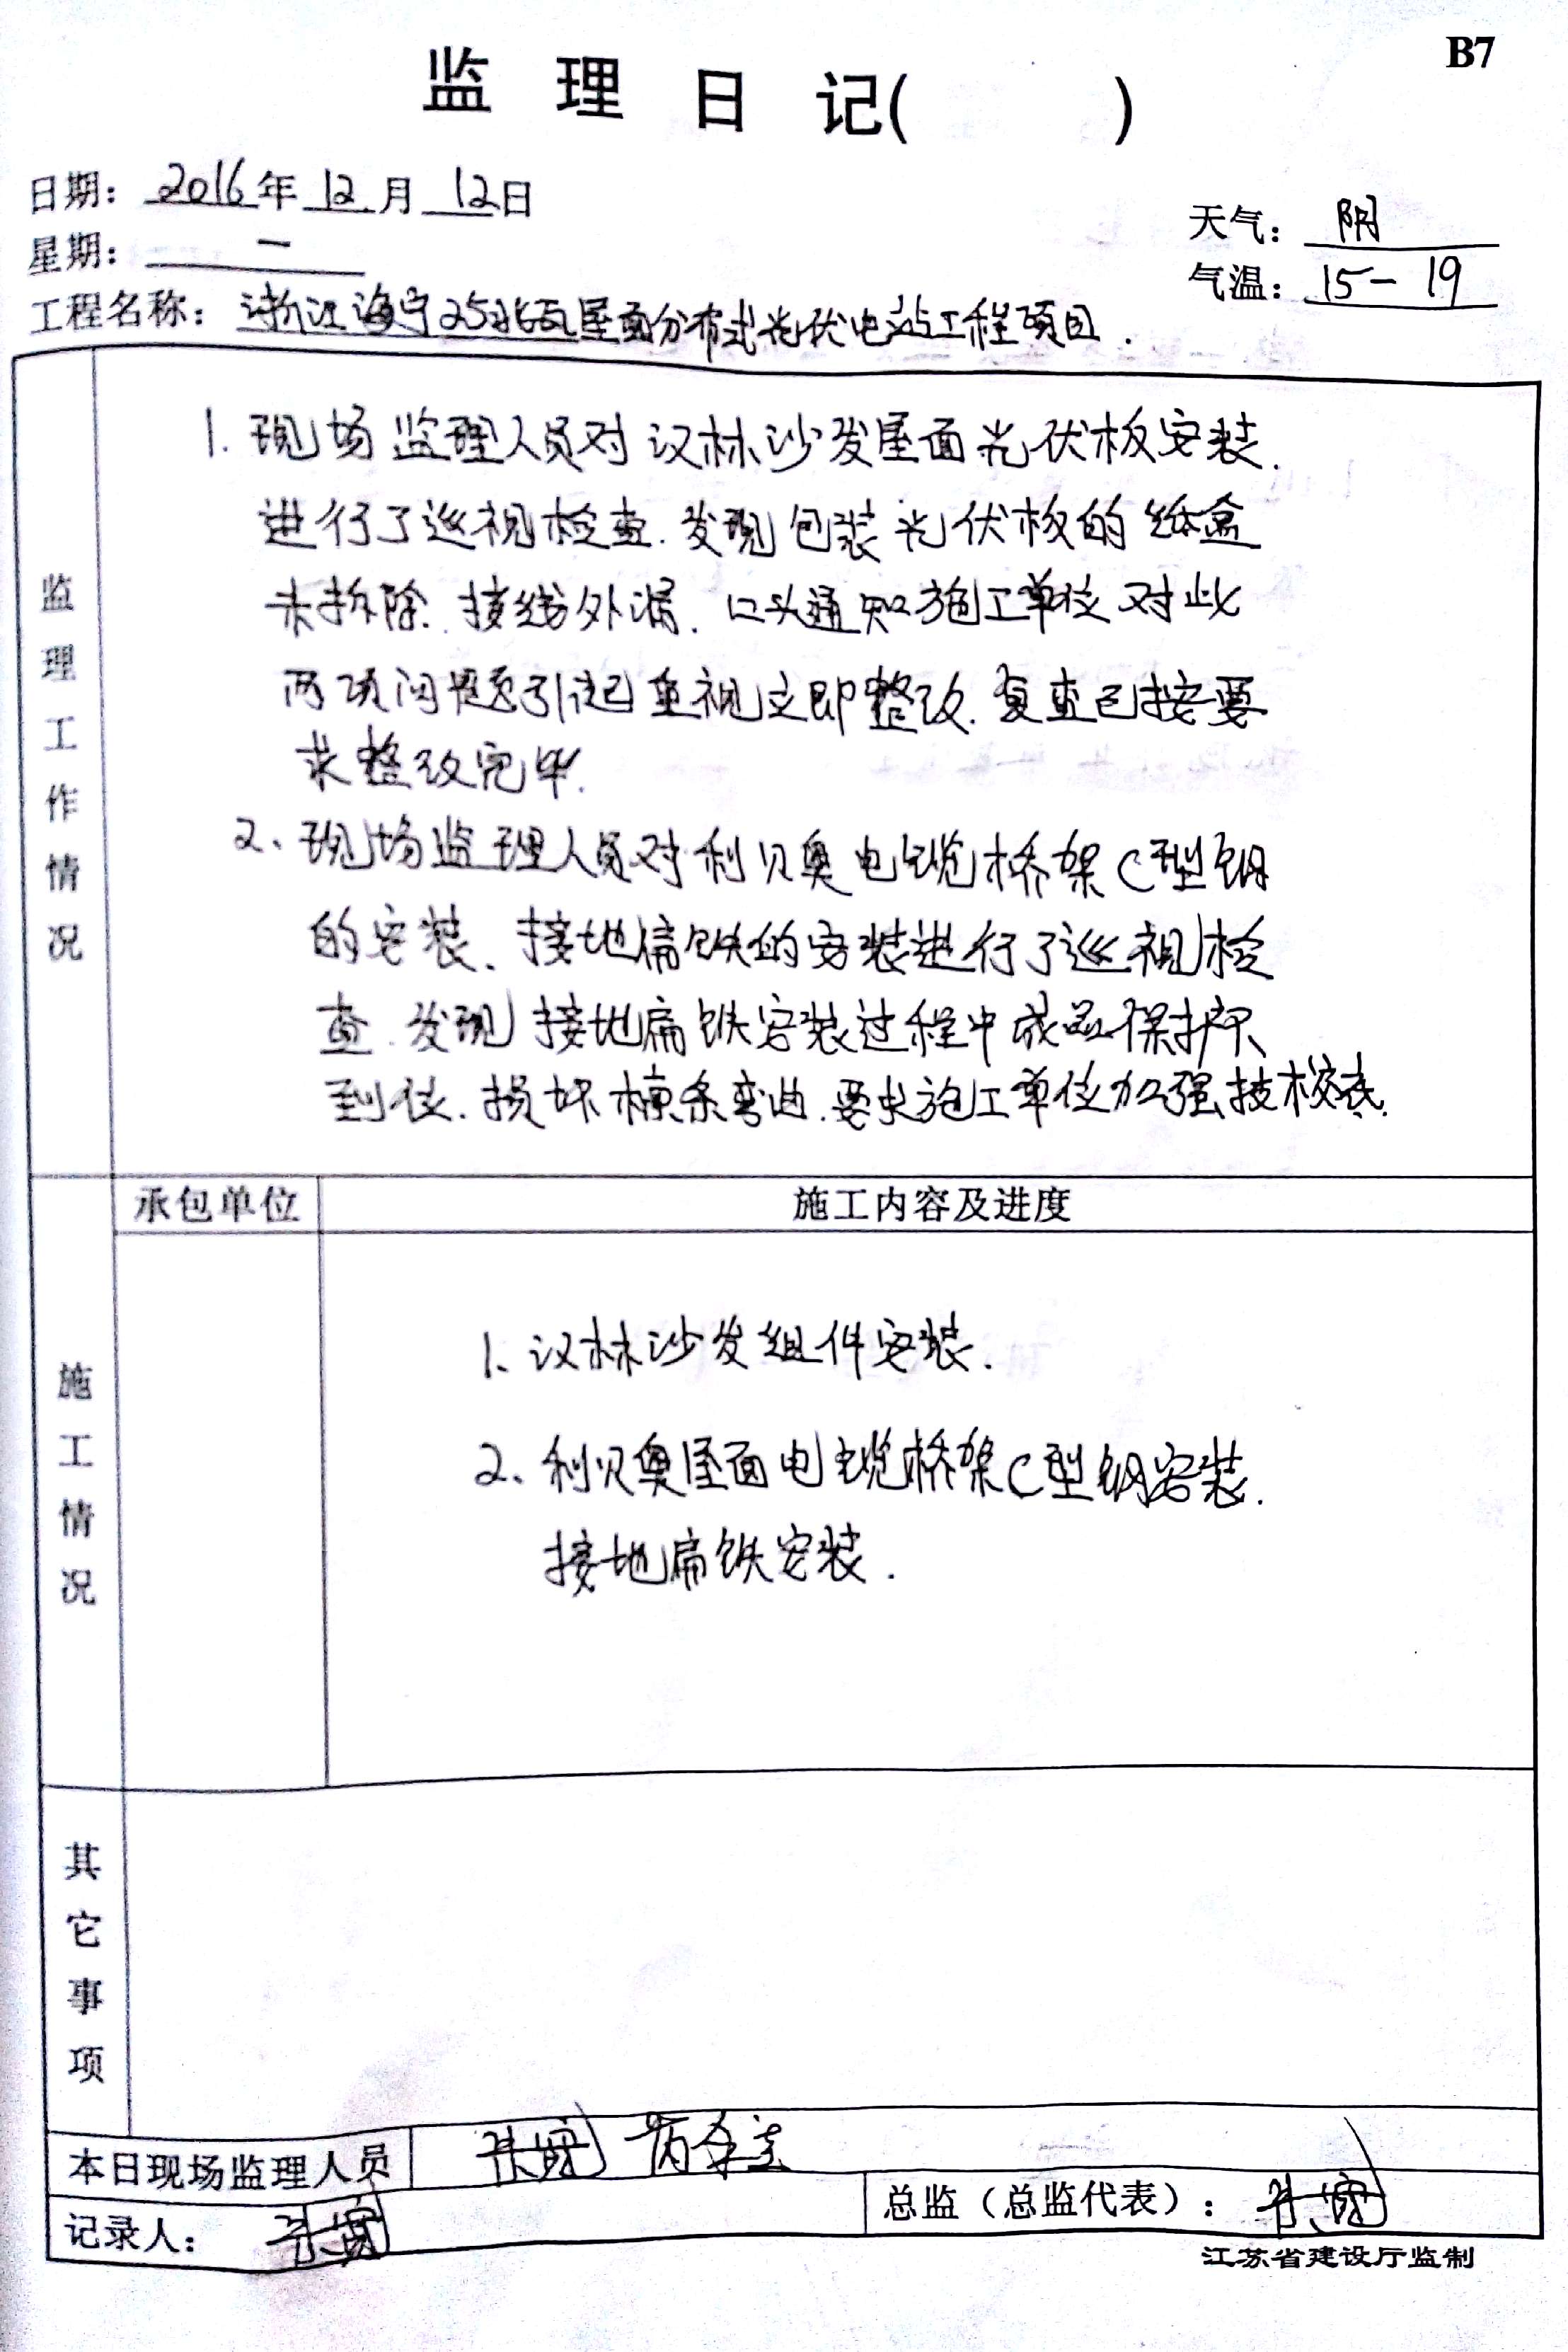 B7
监理日记(  )
日期：2016年12月12日
天气：阴
星期：一
气温：15-19
工程名称：浙江海宁25兆瓦屋面分布式光伏电站工程项目.
监理工作情况
1.现场监理人员对汉林沙发屋面光伏板安装.
进行了巡视检查.发现包装光伏板的纸盒
未拆除.接线外漏.口头通知施工单位对此
两项问题引起重视立即整改.复查已按要
求整改完毕.
2、现场监理人员对利贝奥电缆桥架C型钢
的安装、接地扁铁的安装进行了巡视检
查.发现接地扁铁安装过程中成品保护不
到位.损坏檩条弯曲.要求施工单位加强技
承包单位
施工内容及进度
施工情况
1、汉林沙发组件安装.
2、利贝奥屋面电缆桥架C型钢安装.
接地扁铁安装.
其它事项
本日现场监理人员
记录人：
总监（总监代表）：
江苏省建设厅监制